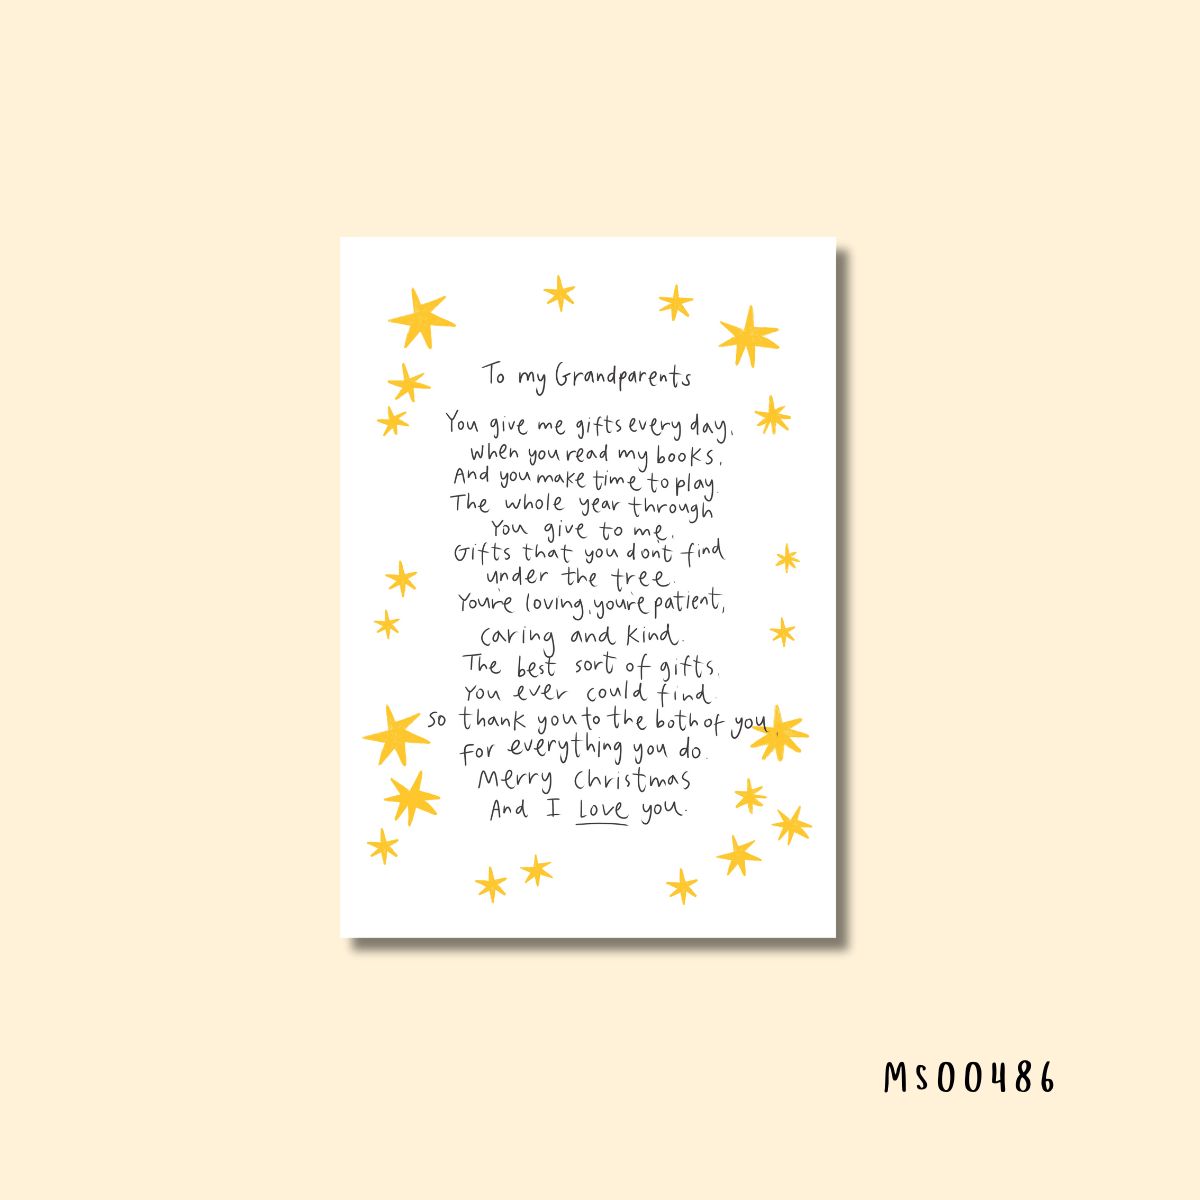 To my Grandparents
You give me gifts every day,
when you read my books,
And you make time to play.
The whole year through
You give to me,
Gifts that you don't find
under the tree.
You're loving, you're patient,
caring and kind.
The best sort of gifts,
You ever could find.
so thank you to the both of you,
for everything you do.
Merry Christmas
And I love you.
MS00486